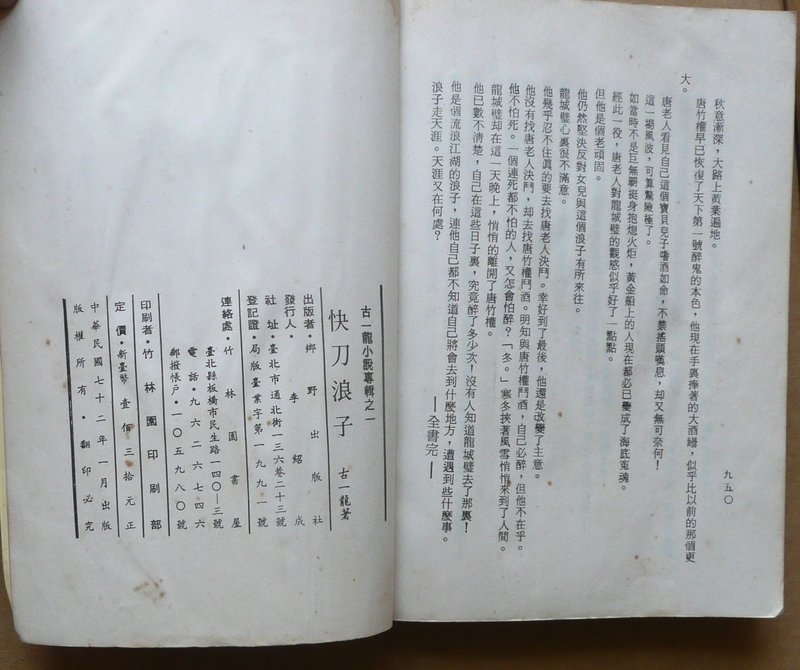 九五〇
秋意漸深，大路上黃葉遍地。
唐竹權早已恢復了天下第一號醉鬼的本色，他現在手裏捧著的大酒罈，似乎比以前的那個更
大。
唐老人看見自己這個寶貝兒子嗜酒如命，不禁搖頭嘆息，却又無可奈何！
這一場風波，可算驚險極了。
如當時不是巨無霸挺身抱熄火炬，黃金船上的人現在都必已變成了海底寃魂。
經此一役，唐老人對龍城璧的觀感似乎好了一點點。
但他是個老頑固。
他仍然堅決反對女兒與這個浪子有所來往。
龍城璧心裏很不滿意。
他幾乎忍不住眞的要去找唐老人決鬥。幸好到了最後，他還是改變了主意。
他沒有找唐老人決鬥，却去找唐竹權鬥酒。明知與唐竹權鬥酒，自己必醉，但他不在乎。
他不怕死。一個連死都不怕的人，又怎會怕醉？「冬。」寒冬挾著風雪悄悄來到了人間。
龍城璧却在這一天晚上，悄悄的離開了唐竹權。
他已數不清楚，自己在這些日子裏，究竟醉了多少次！沒有人知道龍城璧去了那裏！
他是個流浪江湖的浪子，連他自己都不知道自己將會去到什麼地方，遭遇到些什麼事。
浪子走天涯。天涯又在何處？
——全書完——
古一龍小說專輯之一
快刀浪子 古一龍著
出版者・鄉野出版社
發行人・李紹成
社址・臺北市通北街一三六巷二十三號
登記證・局版臺業字第一九九一號
連絡處・竹林園書屋
臺北縣板橋市民生路一四〇—三號
電話・九六二六七四六
郵撥帳戶・一〇五九八〇號
印刷者・竹林園印刷部
定價・新臺幣壹佰三拾元正
中華民國七十二年一月出版
版權所有・翻印必究